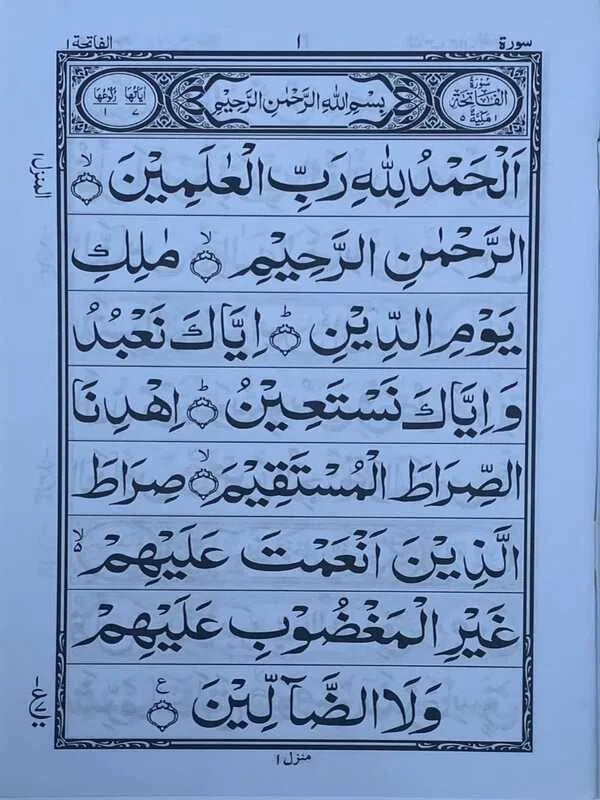 سورة ١ الفاتحة ١
سُورَةُ الْفَاتِحَةِ مَكِّيَّةٌ ٥ بِسْمِ اللهِ الرَّحْمٰنِ الرَّحِيْمِ اٰيَاتُهَا ٧ رُكُوْعُهَا ١
اَلْحَمْدُ لِلّٰهِ رَبِّ الْعٰلَمِيْنَ ۙ
الرَّحْمٰنِ الرَّحِيْمِ ۙ مٰلِكِ
يَوْمِ الدِّيْنِ ؕ اِيَّاكَ نَعْبُدُ
وَ اِيَّاكَ نَسْتَعِيْنُ ؕ اِهْدِنَا
الصِّرَاطَ الْمُسْتَقِيْمَ ۙ صِرَاطَ
الَّذِيْنَ اَنْعَمْتَ عَلَيْهِمْ ۙ۵
غَيْرِ الْمَغْضُوْبِ عَلَيْهِمْ
وَلَا الضَّآلِّيْنَ ع
المنزل ١
منزل ١